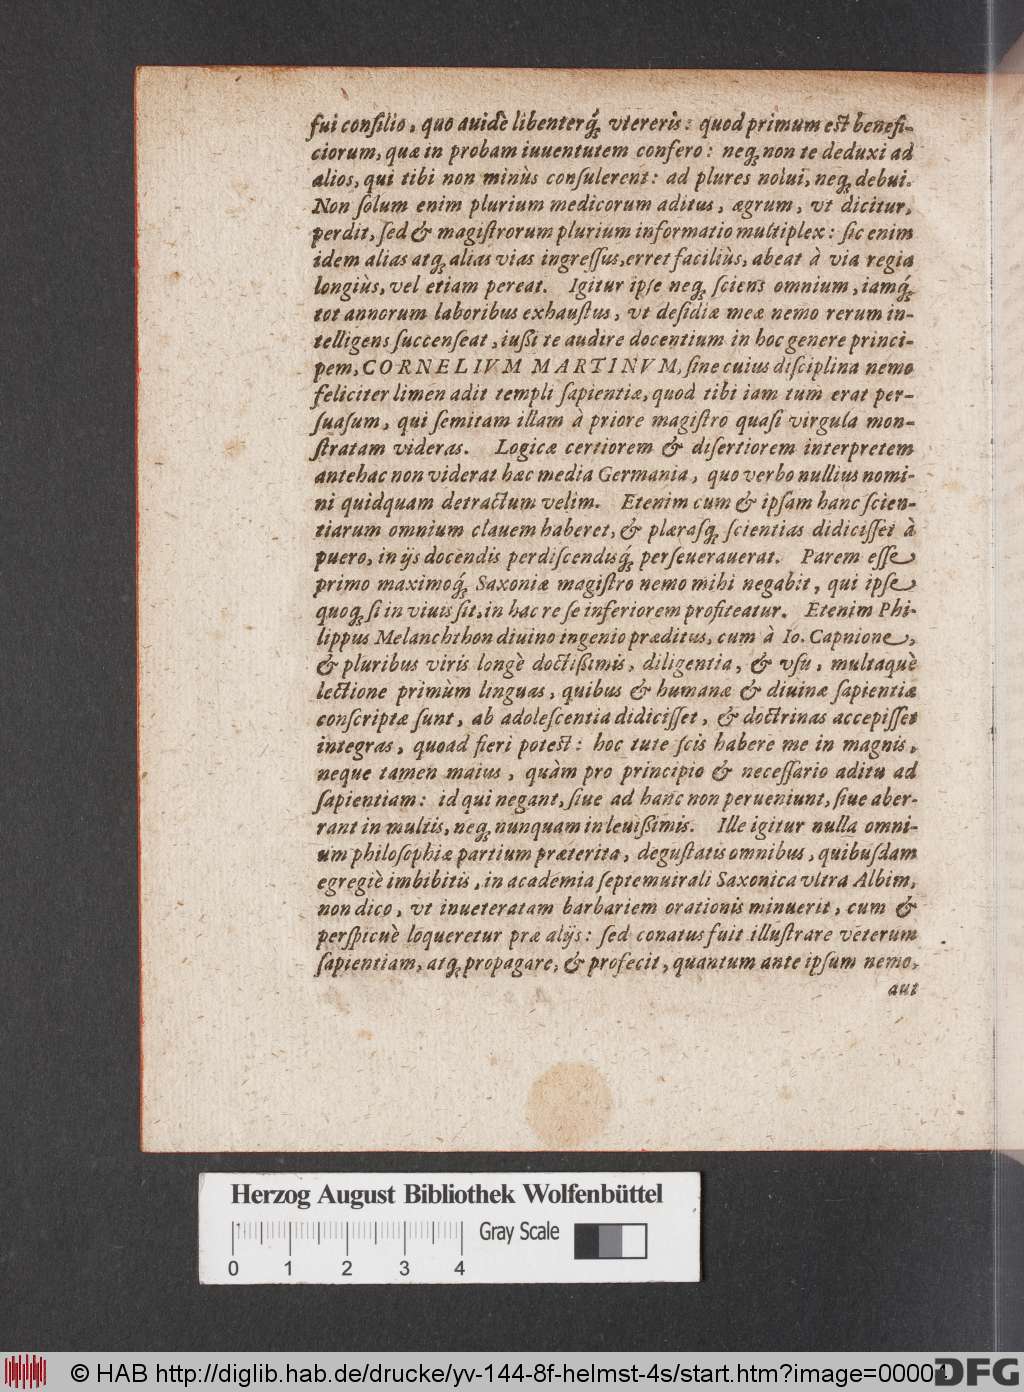 fui conſilio, quo auidè libenterq́; vtereris: quod primum eſt benefi-
ciorum, quæ in probam iuuentutem confero: neq; non te deduxi ad
alios, qui tibi non minùs conſulerent: ad plures nolui, neq; debui.
Non ſolum enim plurium medicorum aditus, ægrum, vt dicitur,
perdit, ſed & magiſtrorum plurium informatio multiplex: ſic enim
idem alias atq; alias vias ingreſſus, erret faciliùs, abeat à via regia
longiùs, vel etiam pereat. Igitur ipſe neq; ſciens omnium, iamq́;
tot annorum laboribus exhauſtus, vt deſidiæ meæ nemo rerum in-
telligens ſuccenſeat, iußi te audire docentium in hoc genere princi-
pem, CORNELIVM MARTINVM, ſine cuius diſciplina nemo
feliciter limen adit templi ſapientiæ, quod tibi iam tum erat per-
ſuaſum, qui ſemitam illam à priore magiſtro quaſi virgula mon-
ſtratam videras. Logicæ certiorem & diſertiorem interpretem
antehac non viderat hæc media Germania, quo verbo nullius nomi-
ni quidquam detractum velim. Etenim cum & ipſam hanc ſcien-
tiarum omnium clauem haberet, & plæraſq; ſcientias didiciſſet à
puero, in ijs docendis perdiſcendisq́; perſeuerauerat. Parem eſſe
primo maximoq́; Saxoniæ magiſtro nemo mihi negabit, qui ipſe
quoq; ſi in viuis ſit, in hac re ſe inferiorem profiteatur. Etenim Phi-
lippus Melanchthon diuino ingenio præditus, cum à Io. Capnione,
& pluribus viris longè doctißimis, diligentia, & vſu, multaquè
lectione primùm linguas, quibus & humanæ & diuinæ ſapientiæ
conſcriptæ ſunt, ab adoleſcentia didiciſſet, & doctrinas accepiſſet
integras, quoad fieri poteſt: hoc tute ſcis habere me in magnis,
neque tamen maius, quàm pro principio & neceſſario aditu ad
ſapientiam: id qui negant, ſiue ad hanc non perueniunt, ſiue aber-
rant in multis, neq; nunquam in leuißimis. Ille igitur nulla omni-
um philoſophiæ partium præterita, deguſtatis omnibus, quibuſdam
egregiè imbibitis, in academia ſeptemuirali Saxonica vltra Albim,
non dico, vt inueteratam barbariem orationis minuerit, cum &
perſpicuè loqueretur præ alijs: ſed conatus fuit illuſtrare veterum
ſapientiam, atq; propagare, & profecit, quantum ante ipſum nemo,
aut
Herzog August Bibliothek Wolfenbüttel
Gray Scale
0 1 2 3 4
© HAB http://diglib.hab.de/drucke/yv-144-8f-helmst-4s/start.htm?image=00004
DFG